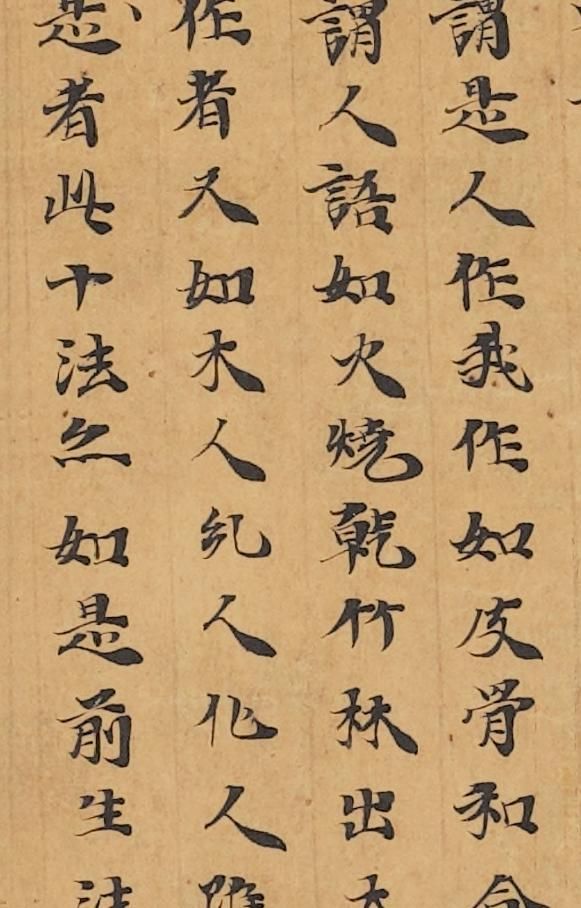 謂是人作我作如皮骨和合
謂人語如火燒乾竹林出大
作者又如木人紙人化人雖
是者此十法亦如是前生法